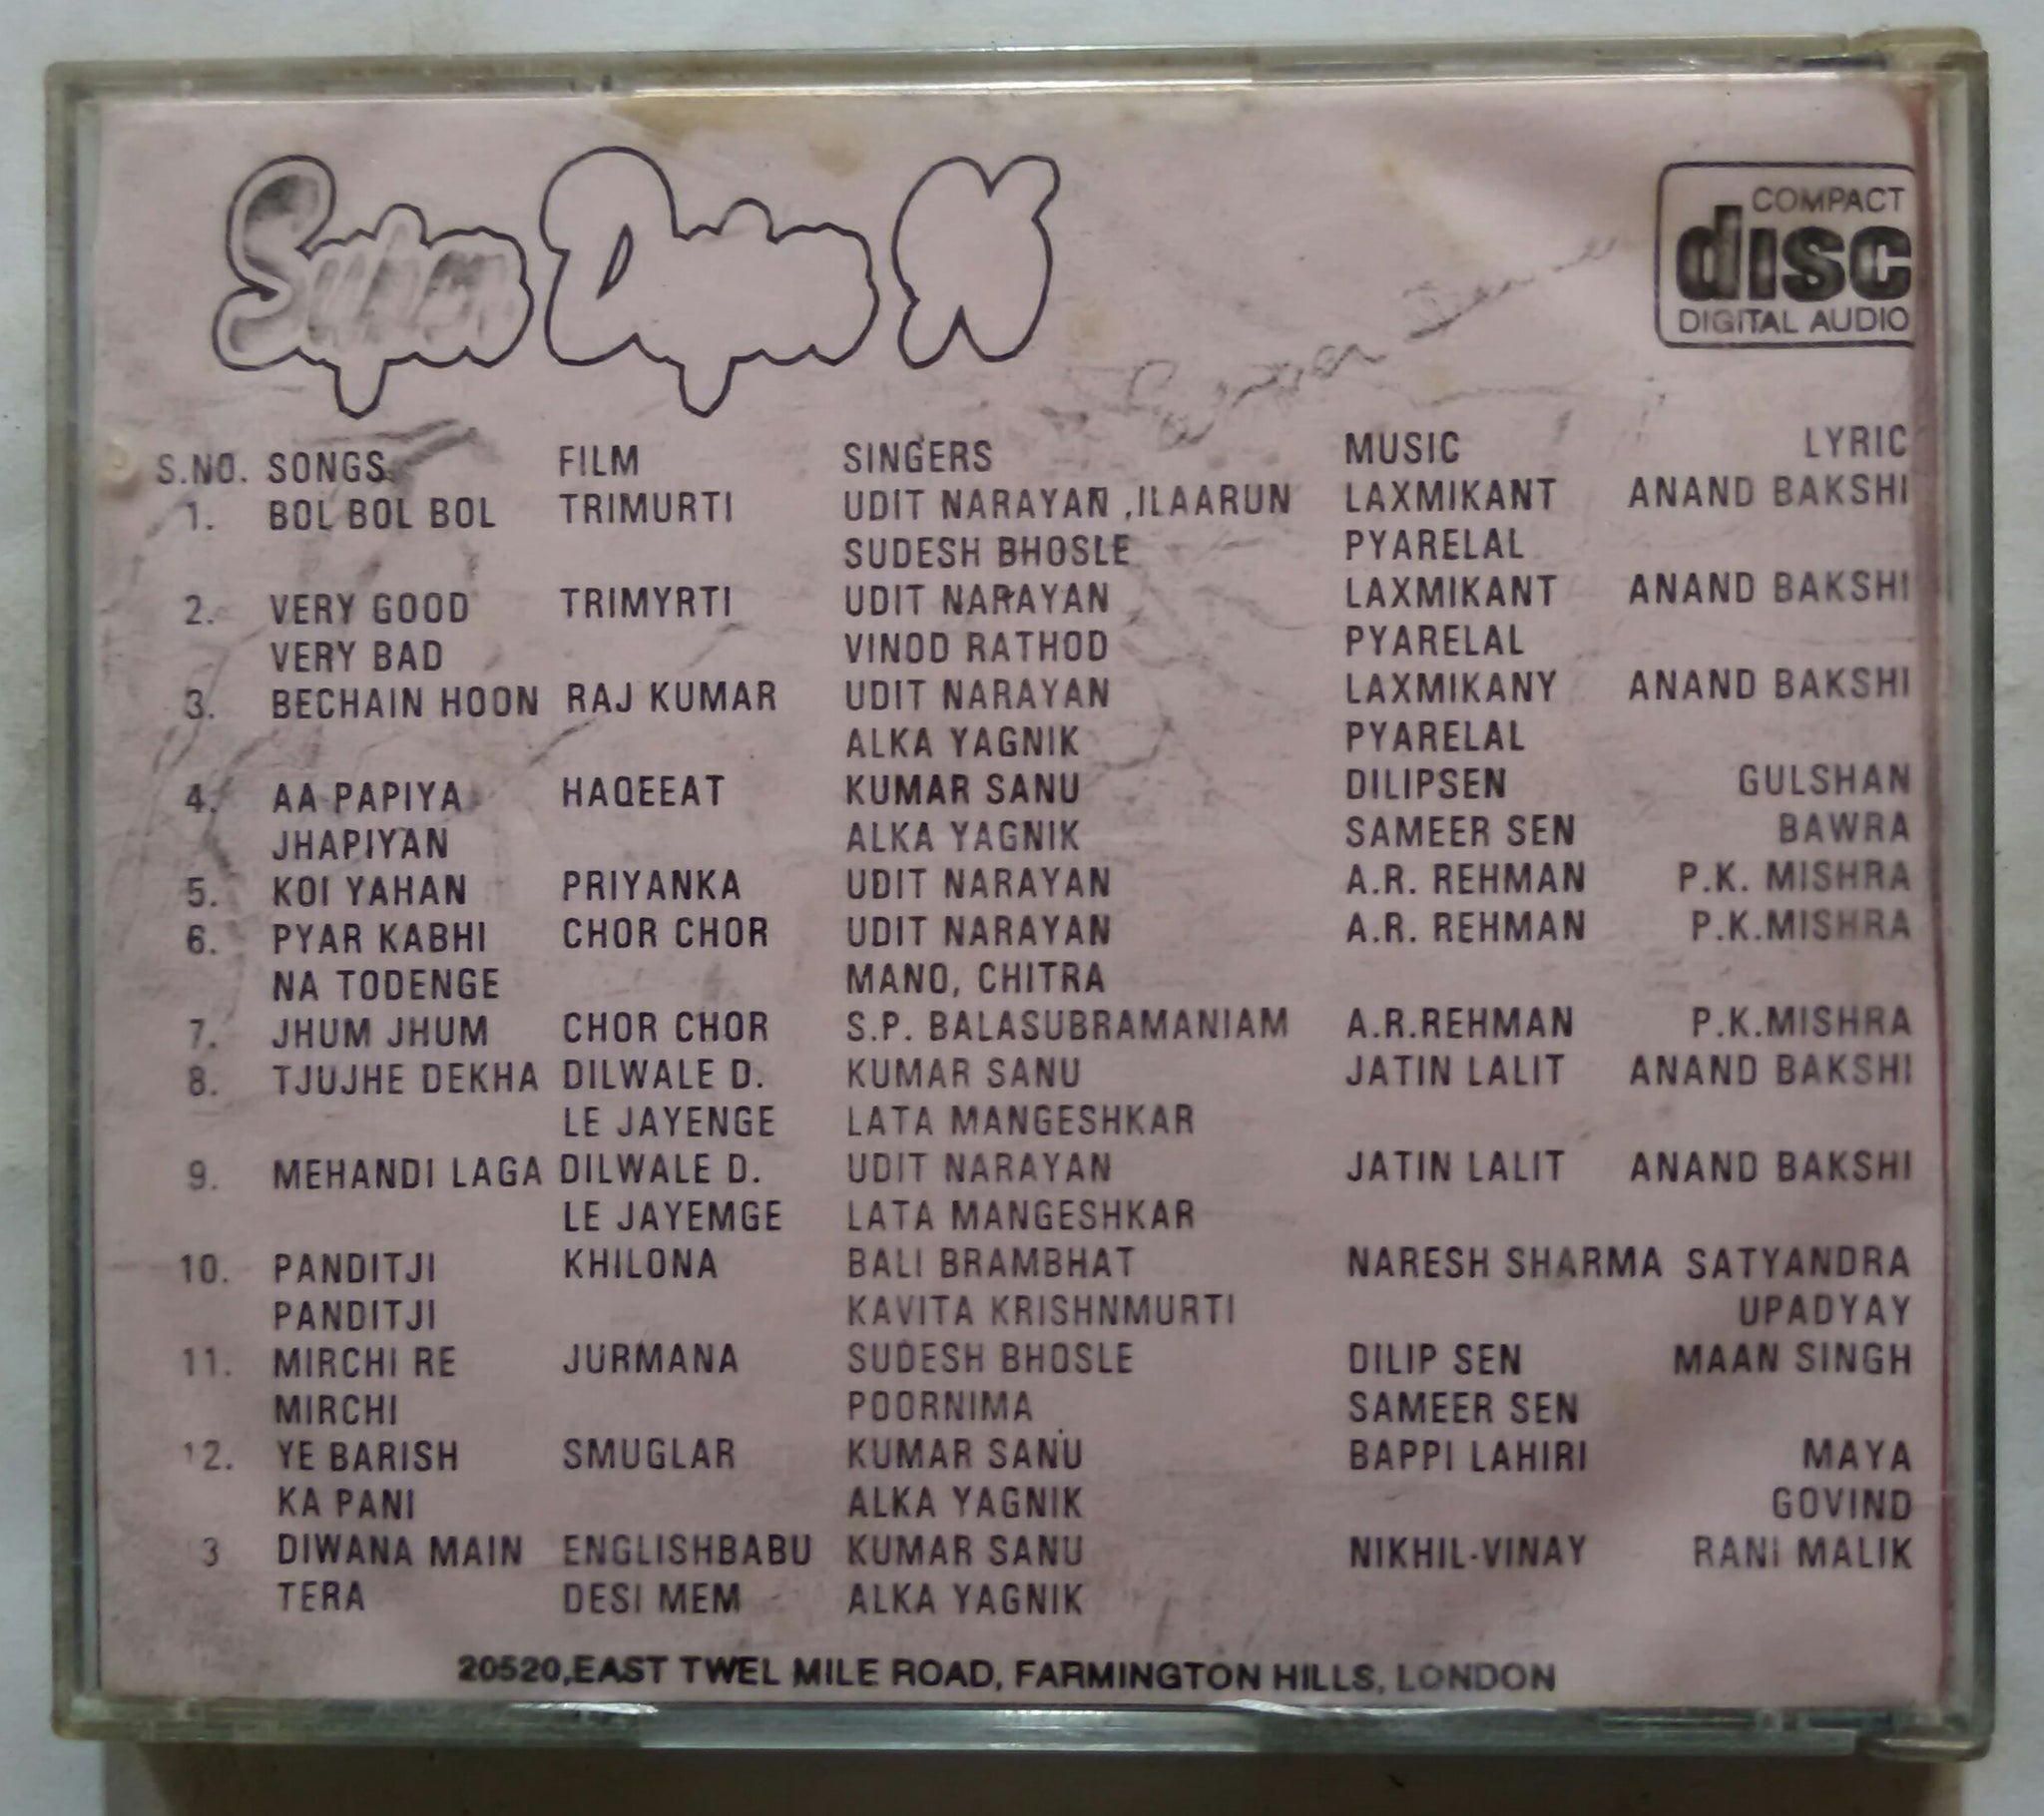 Super Duper
COMPACT
disc
DIGITAL AUDIO
Super
S.NO. SONGS FILM SINGERS MUSIC LYRIC
1. BOL BOL BOL TRIMURTI UDIT NARAYAN ,ILAARUN LAXMIKANT ANAND BAKSHI
SUDESH BHOSLE PYARELAL
2. VERY GOOD TRIMYRTI UDIT NARAYAN LAXMIKANT ANAND BAKSHI
VERY BAD VINOD RATHOD PYARELAL
3. BECHAIN HOON RAJ KUMAR UDIT NARAYAN LAXMIKANY ANAND BAKSHI
ALKA YAGNIK PYARELAL
4. AA PAPIYA HAQEEAT KUMAR SANU DILIPSEN GULSHAN
JHAPIYAN ALKA YAGNIK SAMEER SEN BAWRA
5. KOI YAHAN PRIYANKA UDIT NARAYAN A.R. REHMAN P.K. MISHRA
6. PYAR KABHI CHOR CHOR UDIT NARAYAN A.R. REHMAN P.K.MISHRA
NA TODENGE MANO, CHITRA
7. JHUM JHUM CHOR CHOR S.P. BALASUBRAMANIAM A.R.REHMAN P.K.MISHRA
8. TJUJHE DEKHA DILWALE D. KUMAR SANU JATIN LALIT ANAND BAKSHI
LE JAYENGE LATA MANGESHKAR
9. MEHANDI LAGA DILWALE D. UDIT NARAYAN JATIN LALIT ANAND BAKSHI
LE JAYEMGE LATA MANGESHKAR
10. PANDITJI KHILONA BALI BRAMBHAT NARESH SHARMA SATYANDRA
PANDITJI KAVITA KRISHNMURTI UPADYAY
11. MIRCHI RE JURMANA SUDESH BHOSLE DILIP SEN MAAN SINGH
MIRCHI POORNIMA SAMEER SEN
12. YE BARISH SMUGLAR KUMAR SANU BAPPI LAHIRI MAYA
KA PANI ALKA YAGNIK GOVIND
3 DIWANA MAIN ENGLISHBABU KUMAR SANU NIKHIL-VINAY RANI MALIK
TERA DESI MEM ALKA YAGNIK
20520,EAST TWEL MILE ROAD, FARMINGTON HILLS, LONDON